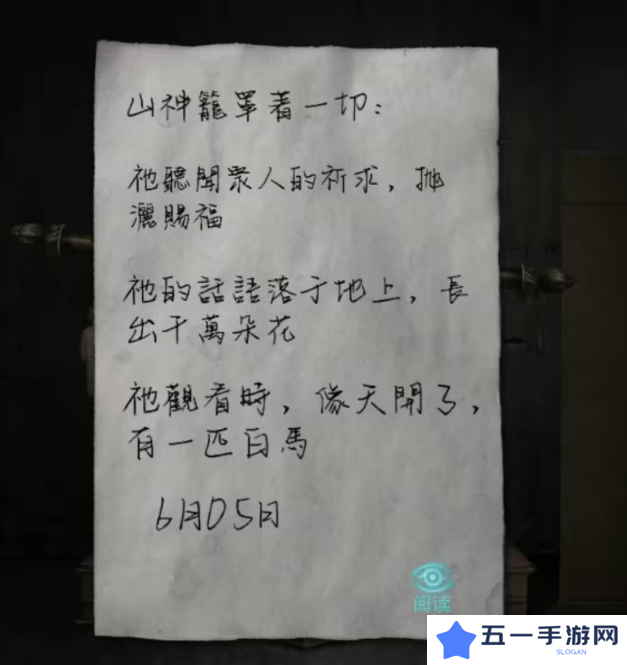 山神籠罩着一切：
祂聽聞眾人的祈求，拋
灑賜福
祂的話語落于地上，長
出千萬朵花
祂觀看時，像天開了，
有一匹白馬
6月05日
阅读
五一手游网
SLOGAN